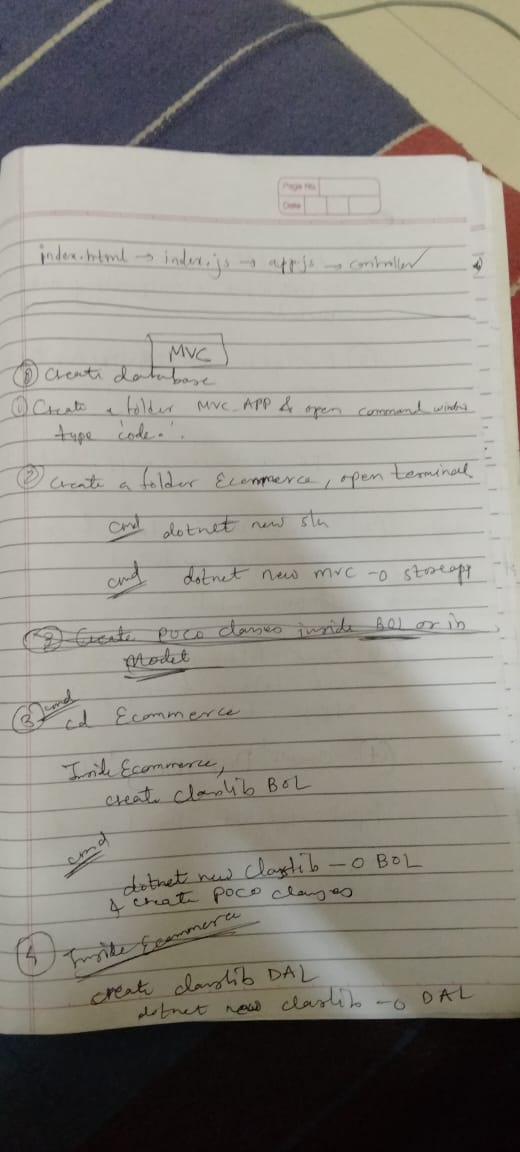 Page No.
Date
index.html → index.js → app.js → controller
MVC
⓪ Create database
① Create a folder MVC_APP & open command window
type 'code .'.
② Create a folder Ecommerce, open terminal
cmd dotnet new sln
cmd dotnet new mvc -o storeapp
③ Create POCO classes inside BOL or in
Model
③ cmd cd Ecommerce
Inside Ecommerce,
create classlib BOL
cmd
dotnet new classlib -o BOL
& create POCO classes
④ Inside Ecommerce
create classlib DAL
dotnet new classlib -o DAL